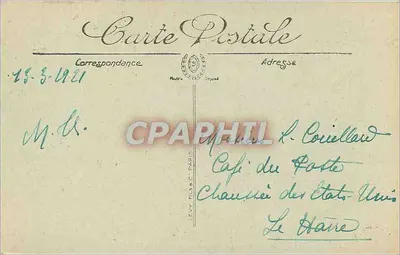 Carte Postale
Correspondance
Adresse
13-3-1921
M. A.
CPAPHIL
Monsieur L. Couillard
Café du Poste
Chaussée des Etats-Unis
Le Havre